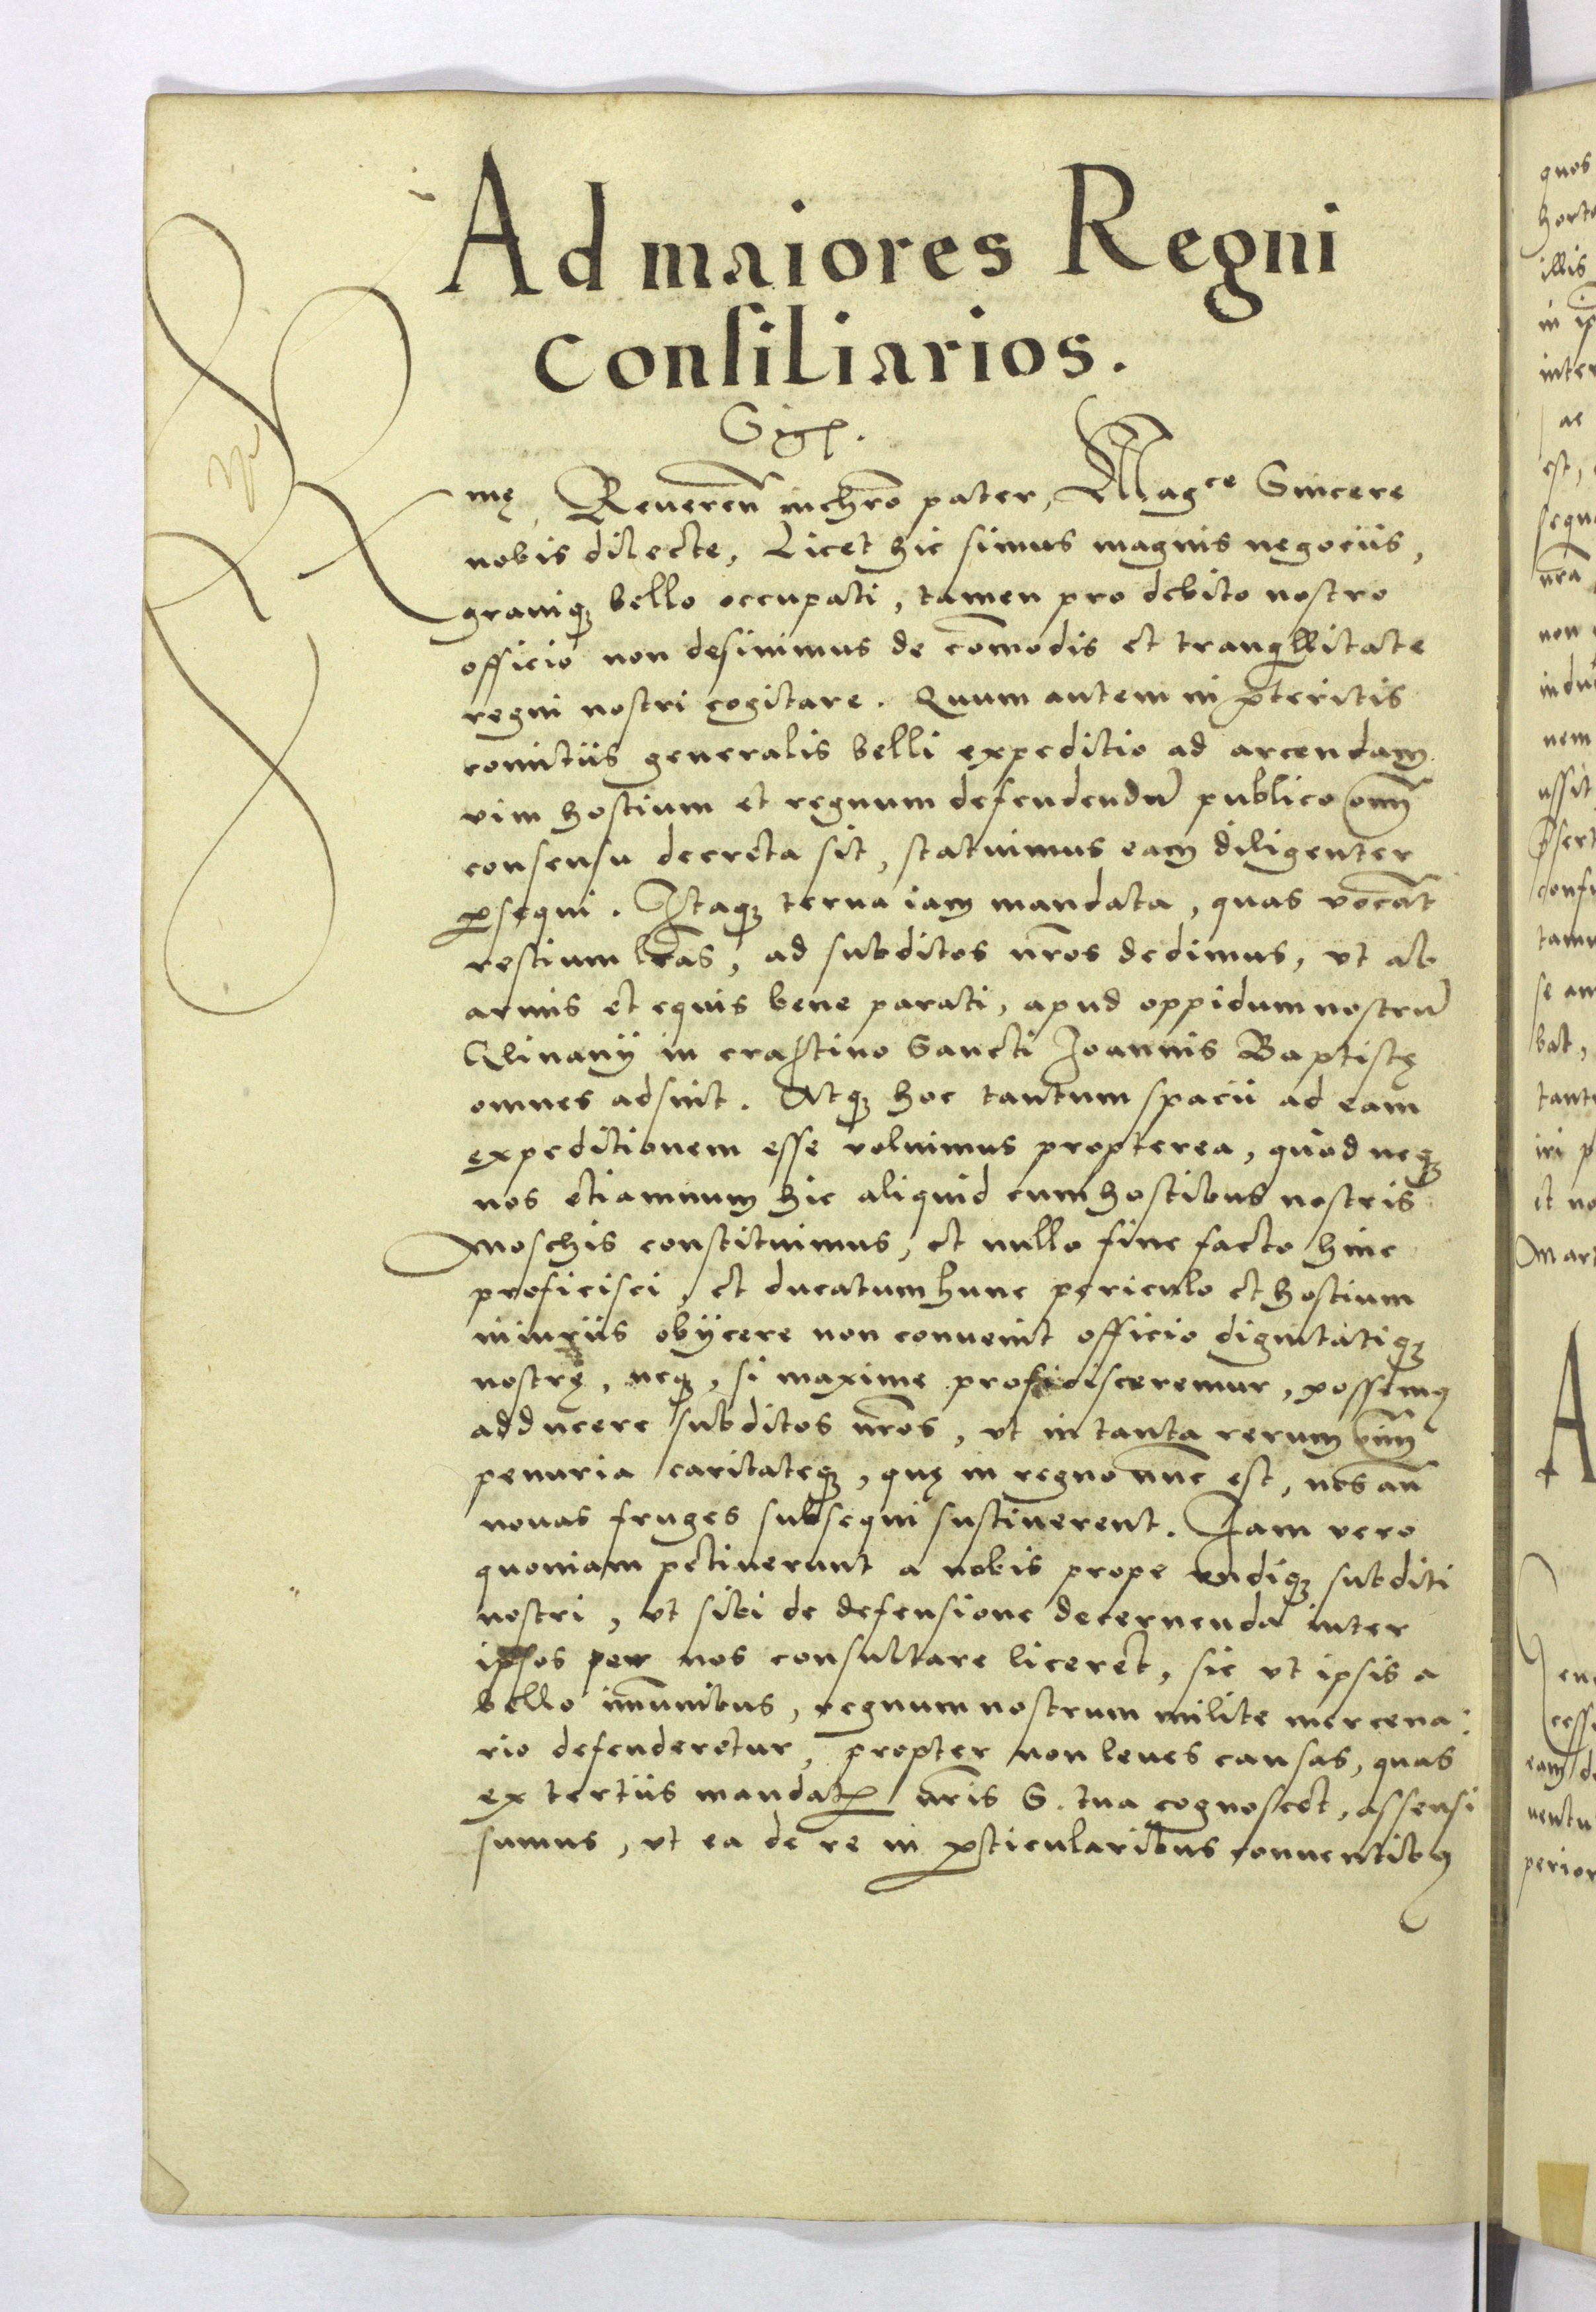 Ad maiores Regni
consiliarios.
Sig.
Rmę, Reueren̄ in chr̄o pater, Magce Sincere
nobis dilecte, Licet hic simus magnis negociis,
grauiq bello occupati, tamen pro debito nostro
officio non desinimus de com̄odis et tranq̄llitate
regni nostri cogitare. Quum autem in p̄teritis
comitiis generalis belli expeditio ad arcendam
vim hostium et regnum defendendū publico om̄
consensu decreta sit, statuimus eam diligenter
ꝑsequi. Itaq terna iam mandata, quas vocāt
restium lr̄as, ad subditos nr̄os dedimus, vt ab
armis et equis bene parati, apud oppidum nostrū
Glinany in crastino Sancti Joannis Baptistę
omnes adsint. Atq hoc tantum spacii ad eam
expeditionem esse voluimus propterea, quod neq
nos etiamnum hic aliquid cum hostibus nostris
Moschis constituimus, et nullo fine facto hinc
proficisci, et ducatum hunc periculo et hostium
iniuriis obiicere non conuenit officio dignitatiq
nostrę, neq, si maxime proficisceremur, possemq
adducere subditos nr̄os, vt in tanta rerum om̄
penuria caritateq, quę in regno nūc est, nos an̄
nouas fruges subsequi sustinerent. Iam vero
quoniam petiuerunt a nobis prope vndiq subditi
nostri, vt sibi de defensione decernenda inter
ipsos per nos consultare liceret, sic vt ipsis a
bello im̄unibus, regnum nostrum milite mercena:
rio defenderetur, propter non leues causas, quas
ex tertiis mandatꝭ nr̄is S. tua cognoscet, assensi
sumus, vt ea de re in ꝑticularibus conuentibq
quos
horta
illis
in ip
inter
ac
est,
sequ
nr̄a
non
indu
nem
assit
confu
tam
se an
bat,
tant
iri p
et no
Mar
A
cess
eam de
uentu
perior